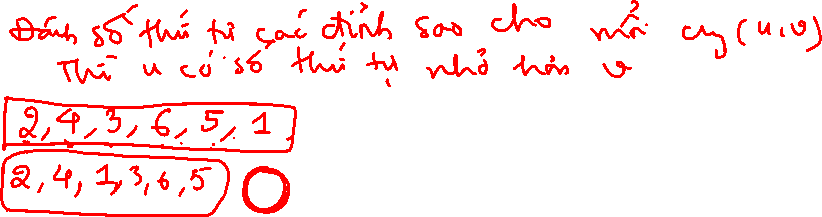 Đánh số thứ tự các đỉnh sao cho mỗi cung (u,v)
Thì u có số thứ tự nhỏ hơn v
2, 4, 3, 6, 5, 1
2, 4, 1, 3, 6, 5